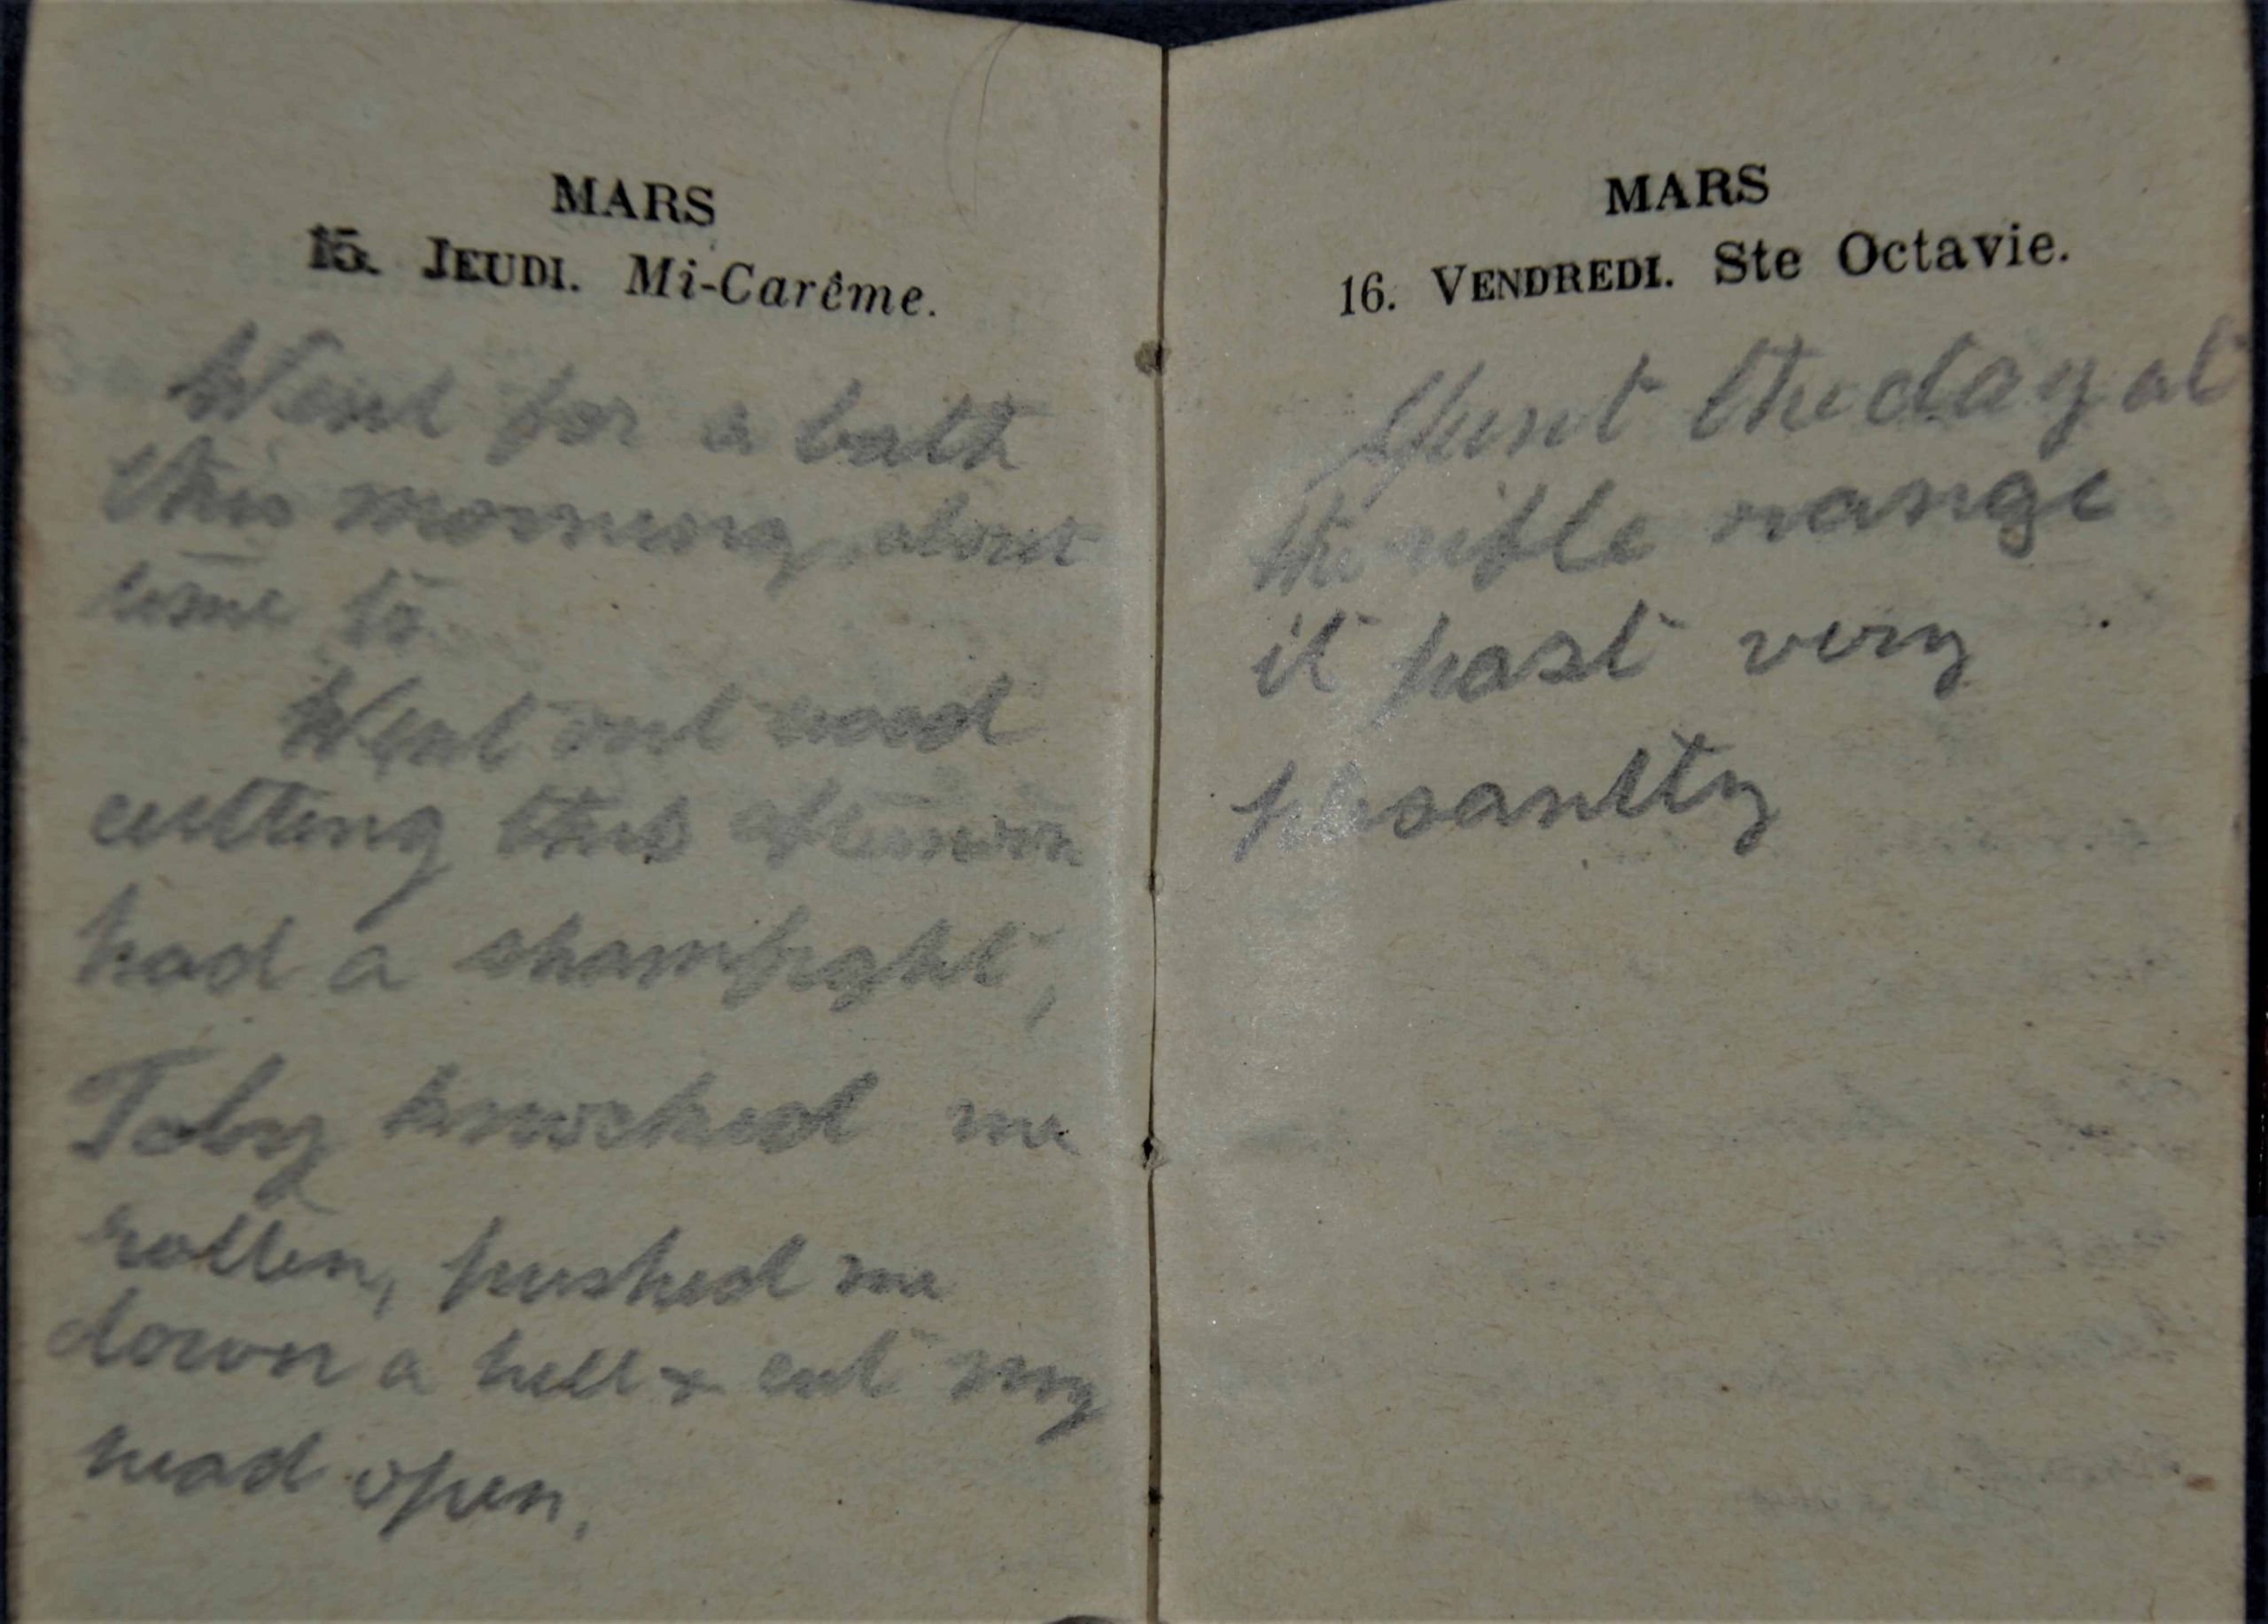 MARS
15. JEUDI. Mi-Carême.
Went for a bath
this morning, about
time to
Went out wood
cutting this afternoon
had a shamfight,
Toby knocked me
rotten, pushed me
down a hill & cut my
head open.
MARS
16. VENDREDI. Ste Octavie.
Spent the day at
the rifle range
it past very
plesantly